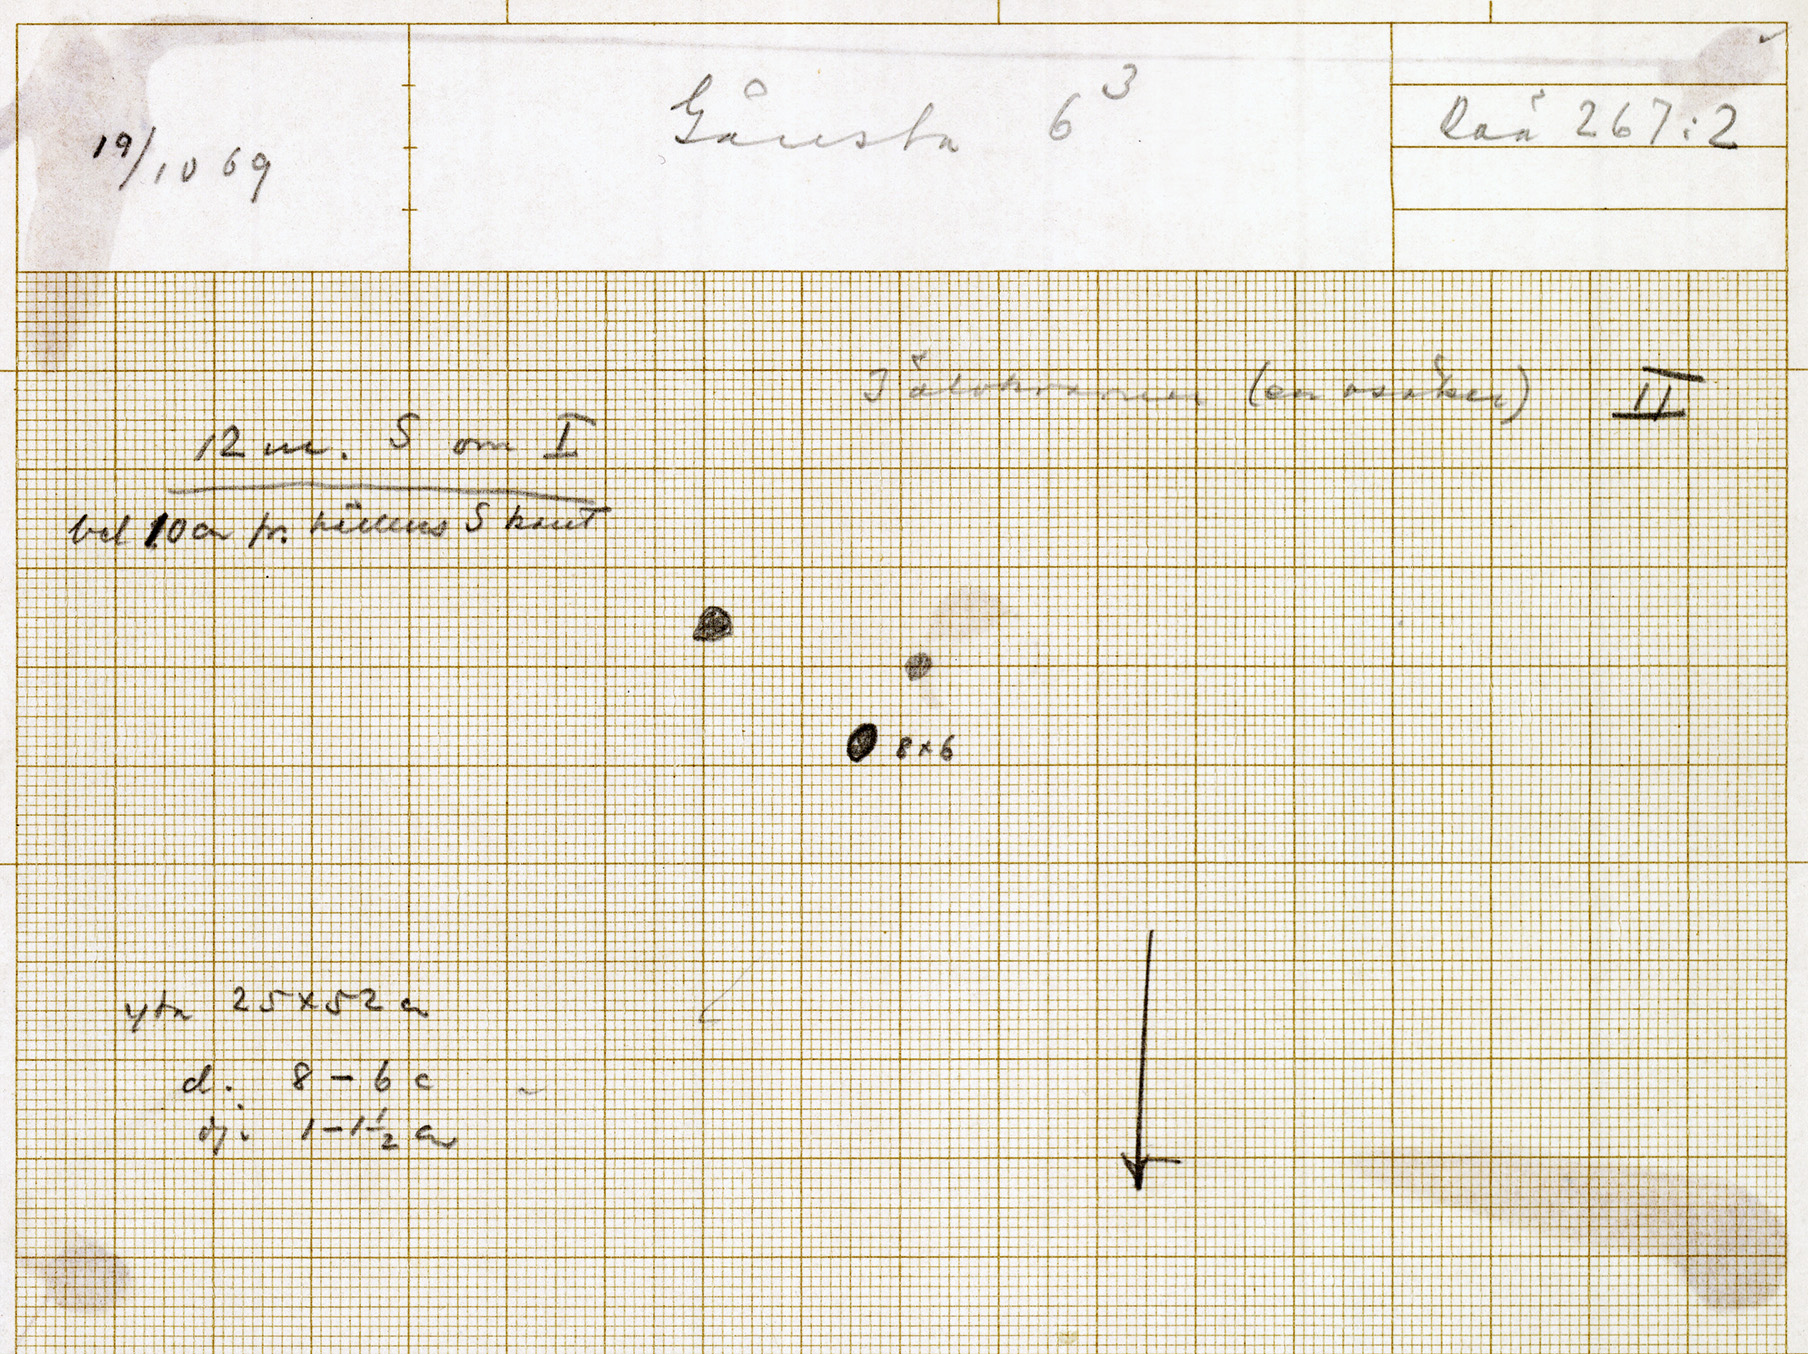 19/10 69
Gånsta 6³
Raä 267:2
3 älvkvarnar (en osäker) II
12 m. S om I
bel 10 cm fr. hällens S kant
8×6
yta 25×52 cm
d. 8–6 c
dj. 1–1½ cm